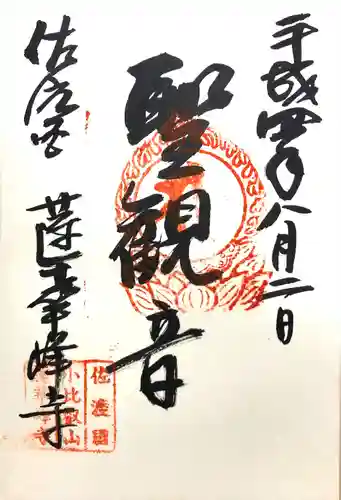 平成四年八月二日
聖観音
佐渡国
蓮華峰寺
佐渡國
小比叡山